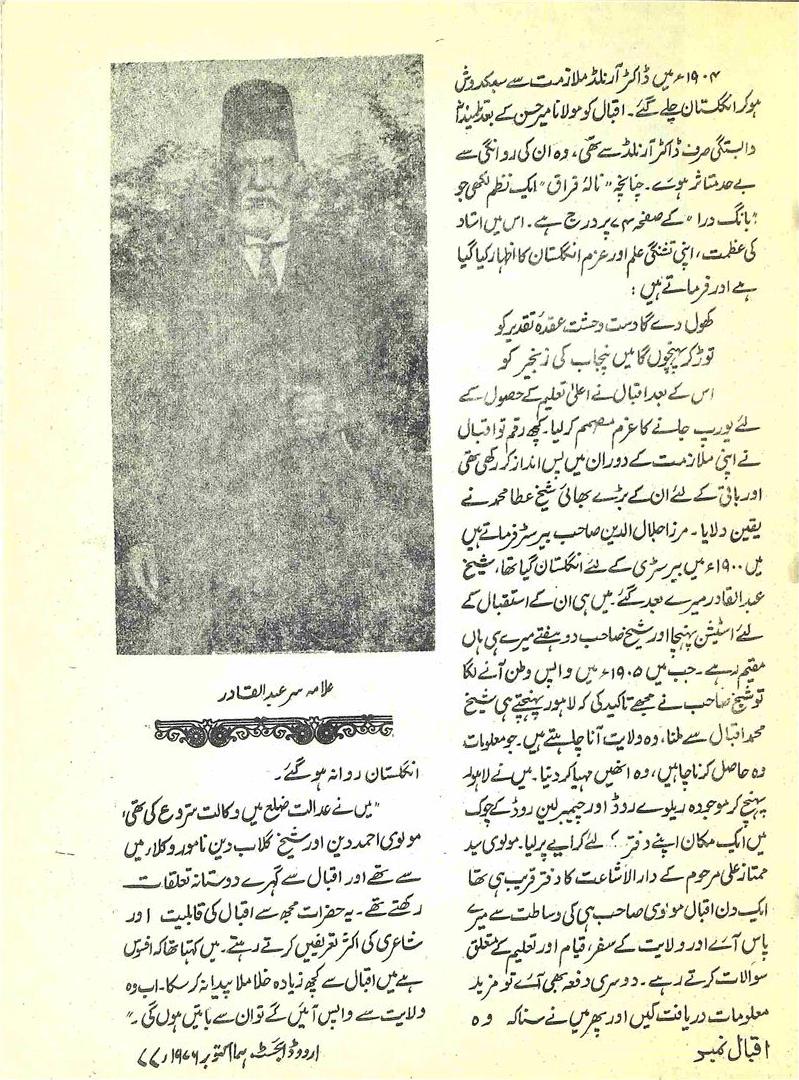 ۱۹۰۴ء میں ڈاکٹر آرنلڈ ملازمت سے سبکدوش
ہوکر انگلستان چلے گئے۔ اقبال کو مولانا میر حسن کے بعد تلمیذانہ
وابستگی صرف ڈاکٹر آرنلڈ سے تھی، وہ ان کی روانگی سے
بے حد متاثر ہوئے۔ چنانچہ "نالۂ فراق" ایک نظم لکھی جو
"بانگ درا" کے صفحہ ۷۴ پر درج ہے۔ اس میں استاد
کی عظمت، اپنی تشنگی علم اور عزم انگلستان کا اظہار کیا گیا
ہے اور فرماتے ہیں :
کھول دے گا دست وحشت عقدۂ تقدیر کو
توڑ کر پہنچوں گا میں پنجاب کی زنجیر کو
اس کے بعد اقبال نے اعلیٰ تعلیم کے حصول کے
لئے یورپ جانے کا عزم مصمم کر لیا۔ کچھ رقم تو اقبال
نے اپنی ملازمت کے دوران میں پس انداز کر رکھی تھی
اور باقی کے لئے ان کے بڑے بھائی شیخ عطا محمد نے
یقین دلایا۔ مرزا جلال الدین صاحب بیرسٹر فرماتے ہیں
میں ۱۹۰۰ء میں بیرسٹری کے لئے انگلستان گیا تھا، شیخ
عبدالقادر میرے بعد گئے۔ میں ہی ان کے استقبال کے
لئے اسٹیشن پہنچا اور شیخ صاحب دو ہفتے میرے ہی ہاں
مقیم رہے۔ جب میں ۱۹۰۵ء میں واپس وطن آنے لگا
تو شیخ صاحب نے مجھے تاکید کی کہ لاہور پہنچتے ہی شیخ
محمد اقبال سے ملنا، وہ ولایت آنا چاہتے ہیں۔ جو معلومات
وہ حاصل کرنا چاہیں، وہ انھیں مہیا کر دینا۔ میں نے لاہور
پہنچ کر موجودہ ریلوے روڈ اور چیمبرلین روڈ کے چوک
میں ایک مکان اپنے دفتر کے لئے کرایے پر لیا۔ مولوی سید
ممتاز علی مرحوم کے دارالاشاعت کا دفتر قریب ہی تھا
ایک دن اقبال مولوی صاحب ہی کی وساطت سے میرے
پاس آئے اور ولایت کے سفر، قیام اور تعلیم کے متعلق
سوالات کرتے رہے۔ دوسری دفعہ بھی آئے تو مزید
معلومات دریافت کیں اور پھر میں نے سنا کہ وہ
اقبال نمبر
علامہ سر عبدالقادر
انگلستان روانہ ہو گئے۔
"میں نے عدالت ضلع میں وکالت شروع کی تھی،
مولوی احمد دین اور شیخ گلاب دین نامور وکلاء میں
سے تھے اور اقبال سے گہرے دوستانہ تعلقات
رکھتے تھے۔ یہ حضرات مجھ سے اقبال کی قابلیت اور
شاعری کی اکثر تعریفیں کرتے رہتے۔ میں کہتا تھا کہ افسوس
ہے میں اقبال سے کچھ زیادہ خلا ملا پیدا نہ کر سکا۔ اب وہ
ولایت سے واپس آئیں گے تو ان سے باتیں ہوں گی۔"
اردو ڈائجسٹ ہما اکتوبر ۱۹۷۶ء